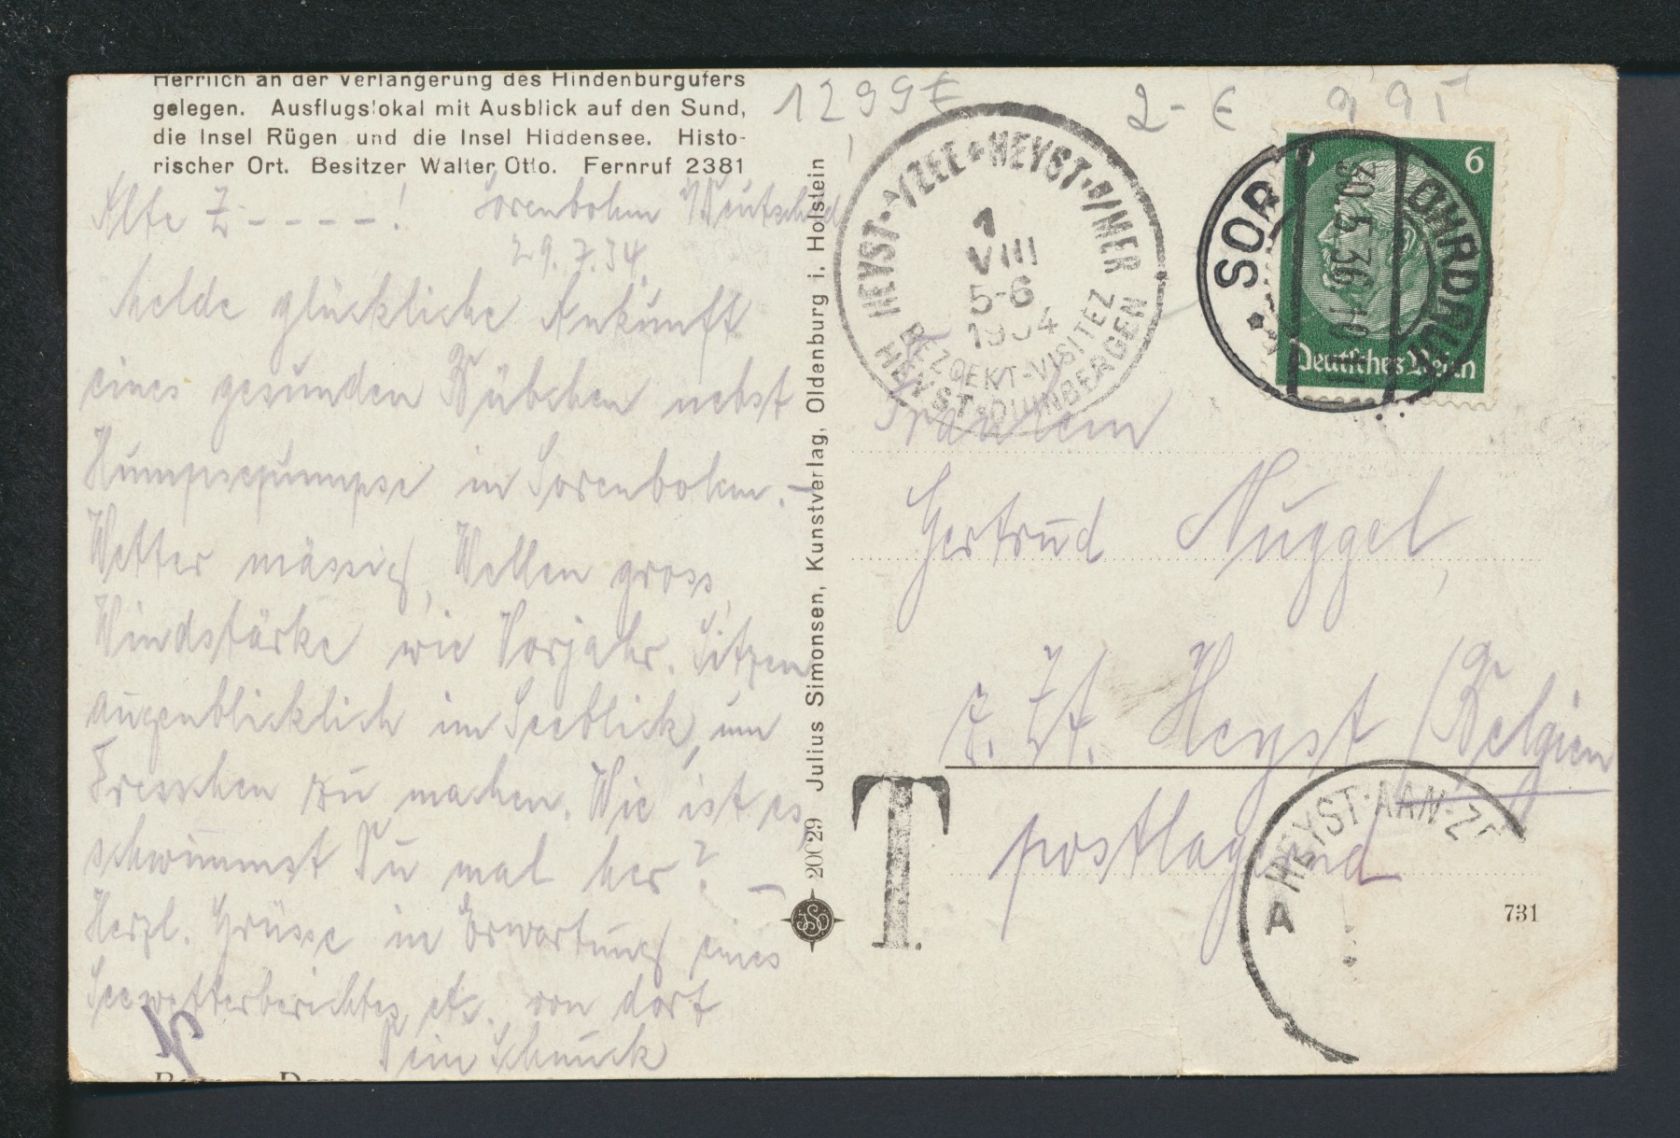 Herrlich an der Verlängerung des Hindenburgufers
gelegen. Ausflugslokal mit Ausblick auf den Sund,
die Insel Rügen und die Insel Hiddensee. Histo-
rischer Ort. Besitzer Walter Otto. Fernruf 2381
12,99 €
2- €
995
Alte Z - - - - - ! Sorenbohm /Deutschld
29.7.34.
Melde glückliche Ankunft
eines gesunden Bübchen nebst
in Sorenbohm. -
Wetter mässig, Wellen gross,
Windstärke wie Vorjahr. Sitzen
augenblicklich im Seeblick, um
Fresschen zu machen. Wie ist es,
schwimmst Du mal her? -
Herzl. Grüsse in Erwartung eines
Seewetterberichtes etc. von dort
Dein Schnuck
20029 Julius Simonsen, Kunstverlag, Oldenburg i. Holstein
JSO
HEYST·A/ZEE * HEYST·S/MER
1
VIII
5-6
1934
BEZOEKT-VISITEZ
HEYST-DUINBERGEN
6
6
Deutsches Reich
SOR
OHRDRUF
30.5.36
Fräulein
Gertrud Nuggel,
z. Zt. Heyst /Belgien
postlagernd
T
HEYST-AAN-ZE
A
731